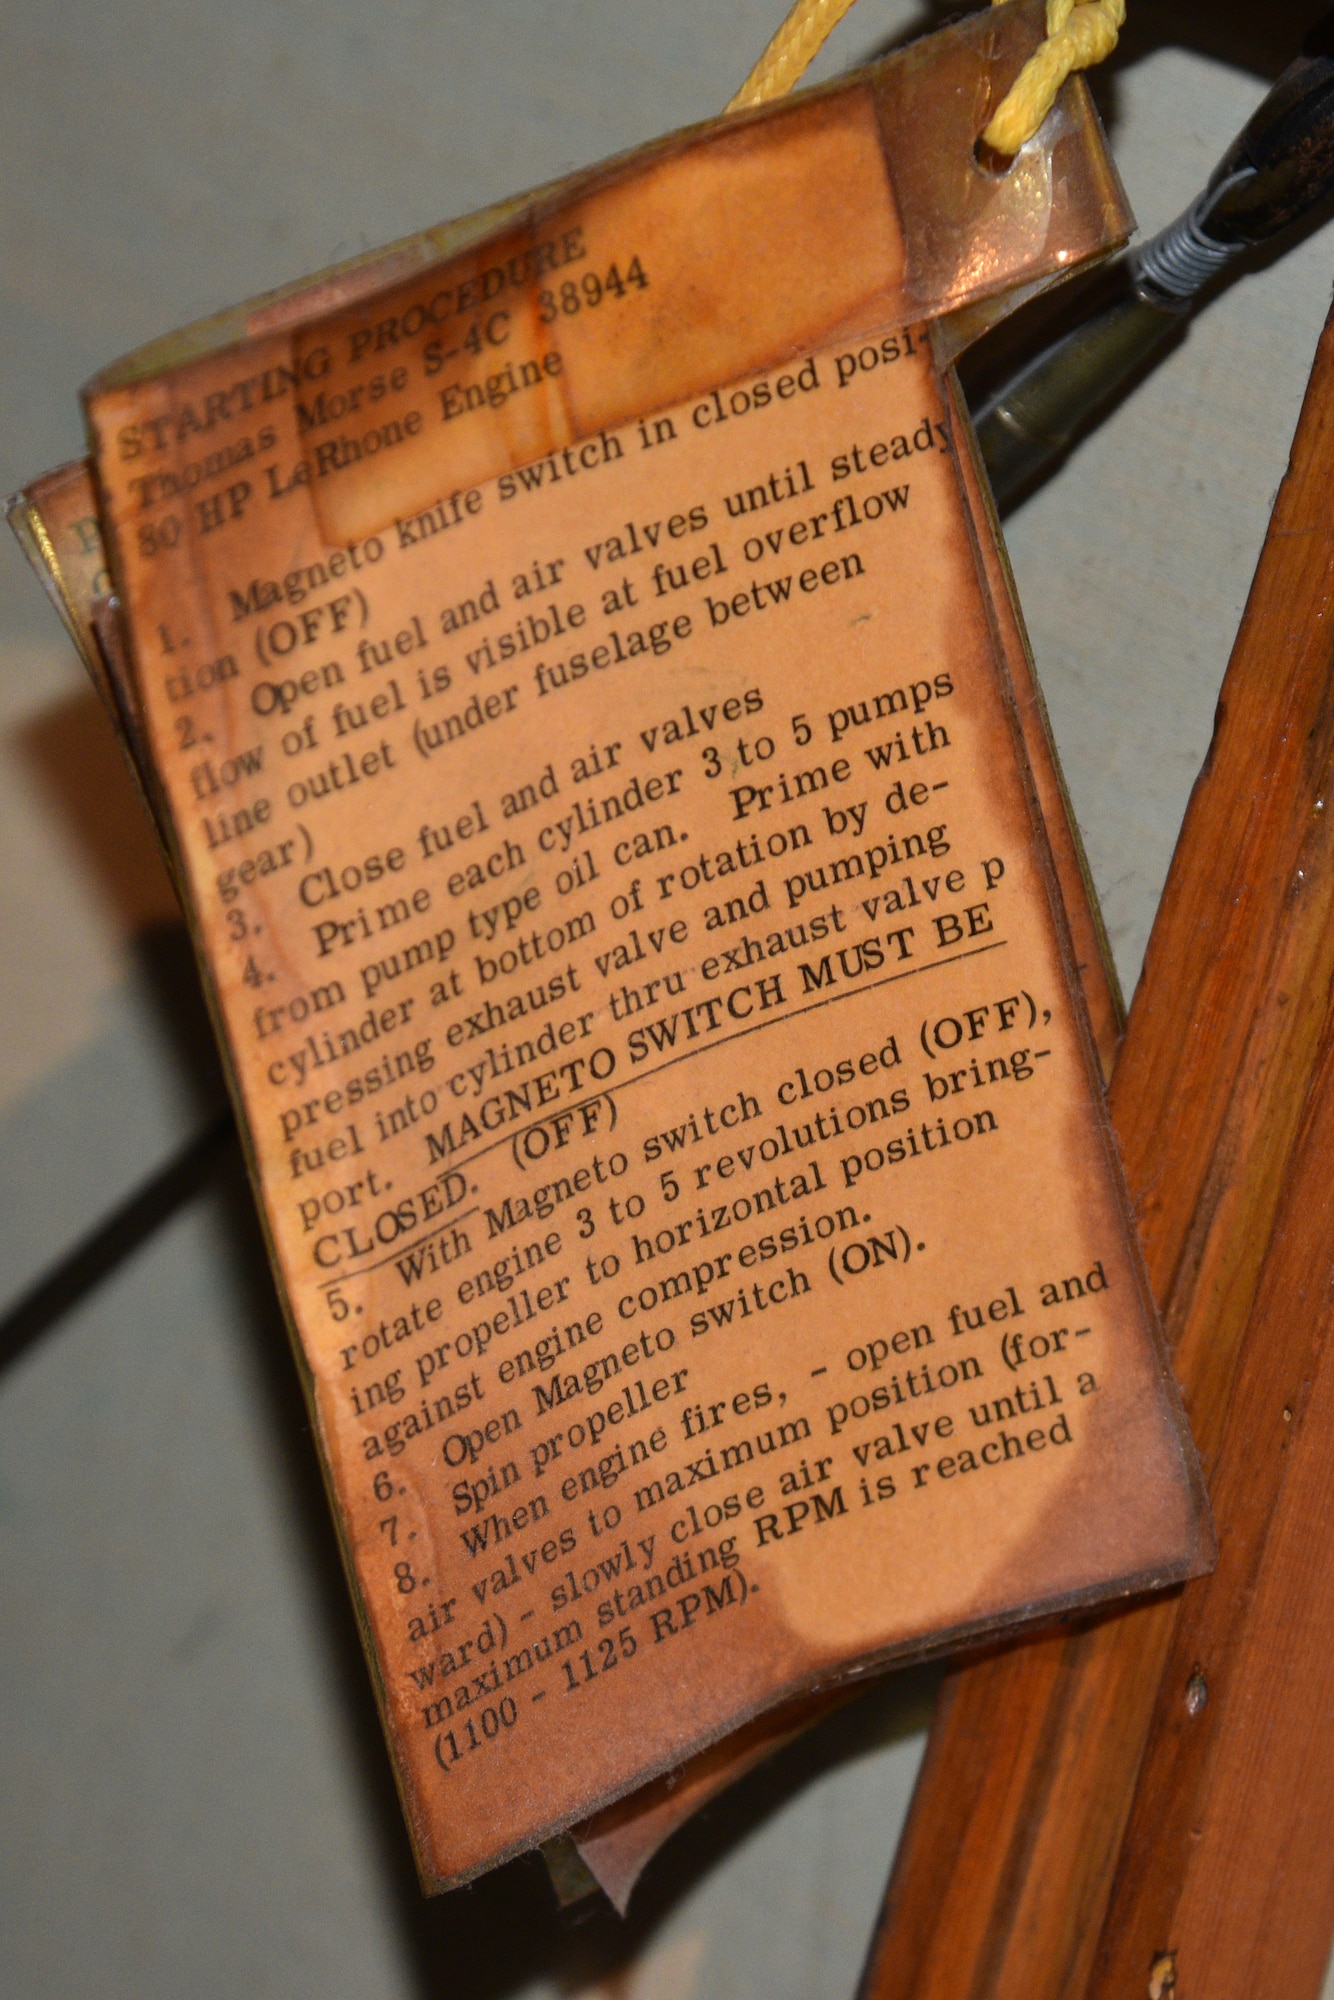 STARTING PROCEDURE
Thomas Morse S-4C 38944
80 HP LeRhone Engine
1. Magneto knife switch in closed posi-
tion (OFF)
2. Open fuel and air valves until steady
flow of fuel is visible at fuel overflow
line outlet (under fuselage between
gear)
3. Close fuel and air valves
4. Prime each cylinder 3 to 5 pumps
from pump type oil can. Prime with
cylinder at bottom of rotation by de-
pressing exhaust valve and pumping
fuel into cylinder thru exhaust valve p
port. MAGNETO SWITCH MUST BE
CLOSED. (OFF)
5. With Magneto switch closed (OFF),
rotate engine 3 to 5 revolutions bring-
ing propeller to horizontal position
against engine compression.
6. Open Magneto switch (ON).
7. Spin propeller
8. When engine fires, - open fuel and
air valves to maximum position (for-
ward) - slowly close air valve until a
maximum standing RPM is reached
(1100 - 1125 RPM).